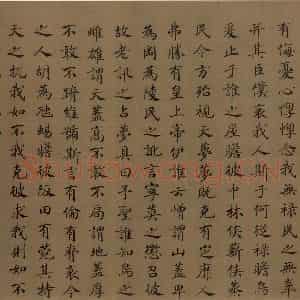 有悔憂心惸惸念我無祿民之無辜
并其臣僕哀我人斯于何從祿瞻烏
爰止于誰之屋瞻彼中林侯薪侯蒸
民今方殆視天夢夢既克有定靡人
弗勝有皇上帝伊誰云憎謂山蓋卑
為岡為陵民之訛言寧莫之懲召彼
故老訊之占夢具曰予聖誰知烏之
雌雄謂天蓋高不敢不局謂地蓋厚
不敢不蹐維號斯言有倫有脊哀今
之人胡為虺蜴瞻彼阪田有菀其特
天之扤我如不我克彼求我則如不